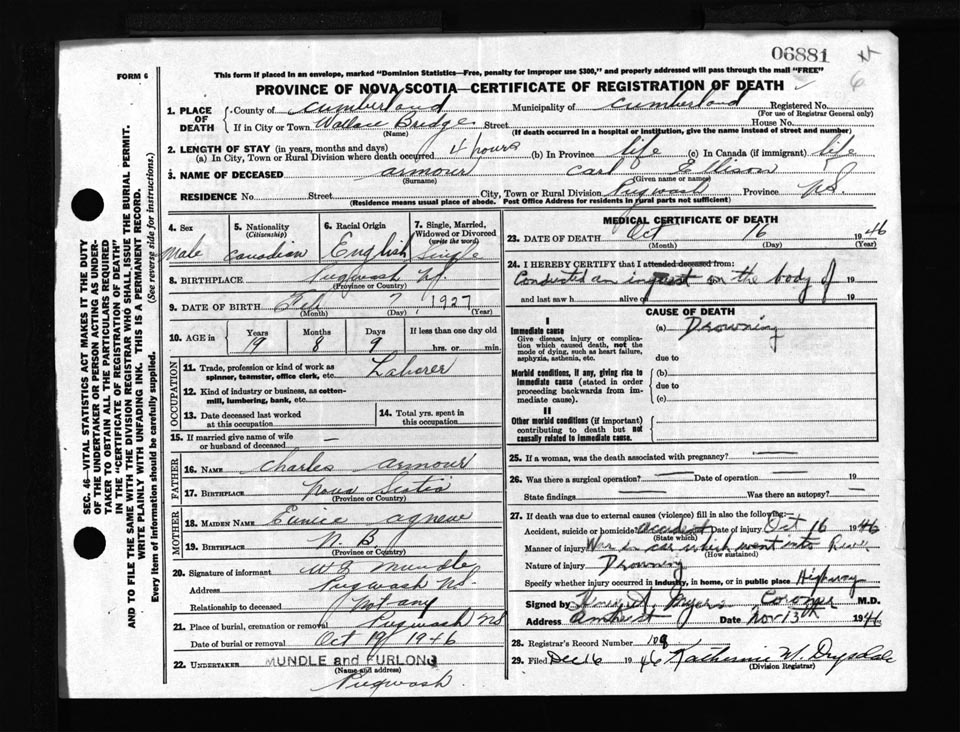 06881
6
FORM 6
This form if placed in an envelope, marked "Dominion Statistics—Free, penalty for improper use $300," and properly addressed will pass through the mail "FREE"
PROVINCE OF NOVA SCOTIA—CERTIFICATE OF REGISTRATION OF DEATH
SEC. 46—VITAL STATISTICS ACT MAKES IT THE DUTY
OF THE UNDERTAKER OR PERSON ACTING AS UNDER-
TAKER TO OBTAIN ALL THE PARTICULARS REQUIRED
IN THE "CERTIFICATE OF REGISTRATION OF DEATH"
AND TO FILE THE SAME WITH THE DIVISION REGISTRAR WHO SHALL ISSUE THE BURIAL PERMIT.
WRITE PLAINLY WITH UNFADING INK. THIS IS A PERMANENT RECORD.
Every item of information should be carefully supplied. (See reverse side for instructions.)
1. PLACE OF DEATH County of Cumberland Municipality of Cumberland Registered No.
(For use of Registrar General only)
If in City or Town Wallace Bridge Street House No.
(Name) (If death occurred in a hospital or institution, give the name instead of street and number)
2. LENGTH OF STAY (in years, months and days)
(a) In City, Town or Rural Division where death occurred 4 hours (b) In Province life (c) In Canada (if immigrant) life
3. NAME OF DECEASED Armour Carl Ellison
(Surname) (Given name or names)
RESIDENCE No. Street City, Town or Rural Division Pugwash Province NS.
(Residence means usual place of abode. Post Office Address for residents in rural parts not sufficient)
4. Sex Male
5. Nationality (Citizenship) Canadian
6. Racial Origin English
7. Single, Married, Widowed or Divorced (write the word) Single
8. BIRTHPLACE Pugwash NS.
(Province or Country)
9. DATE OF BIRTH Feb 7 1927
(Month) (Day) (Year)
10. AGE in Years 19 Months 8 Days 9 If less than one day old
hrs. or min.
OCCUPATION
11. Trade, profession or kind of work as spinner, teamster, office clerk, etc. Laborer
12. Kind of industry or business, as cotton-mill, lumbering, bank, etc.
13. Date deceased last worked at this occupation
14. Total yrs. spent in this occupation
15. If married give name of wife or husband of deceased —
FATHER
16. NAME Charles Armour
17. BIRTHPLACE Nova Scotia
(Province or Country)
MOTHER
18. MAIDEN NAME Eunice Agnew
19. BIRTHPLACE N. B.
(Province or Country)
20. Signature of informant W B Mundle
Address Pugwash NS.
Relationship to deceased Not any
21. Place of burial, cremation or removal Pugwash NS
Date of burial or removal Oct 19 1946
22. UNDERTAKER MUNDLE and FURLONG
(Name and address)
Pugwash.
MEDICAL CERTIFICATE OF DEATH
23. DATE OF DEATH Oct 16 1946
(Month) (Day) (Year)
24. I HEREBY CERTIFY that I attended deceased from:
Conducted an inquest on the body of 19
and last saw h alive on 19
CAUSE OF DEATH
I
Immediate cause (a) Drowning
Give disease, injury or complication which caused death, not the mode of dying, such as heart failure, asphyxia, asthenia, etc.
due to
Morbid conditions, if any, giving rise to immediate cause (stated in order proceeding backwards from immediate cause).
(b)
due to
(c)
II
Other morbid conditions (if important) contributing to death but not causally related to immediate cause.
25. If a woman, was the death associated with pregnancy? —
26. Was there a surgical operation? — Date of operation — 19
State findings — Was there an autopsy? —
27. If death was due to external causes (violence) fill in also the following:
Accident, suicide or homicide? accident Date of injury Oct 16 1946
(State which)
Manner of injury Was in car which went into River
(How sustained)
Nature of injury Drowning
Specify whether injury occurred in industry, in home, or in public place Highway
Signed by Myers Coroner M.D.
Address Amherst Date Nov 13th 1946
28. Registrar's Record Number 108
29. Filed Dec 16 1946 Katherine M. Drysdale
(Division Registrar)